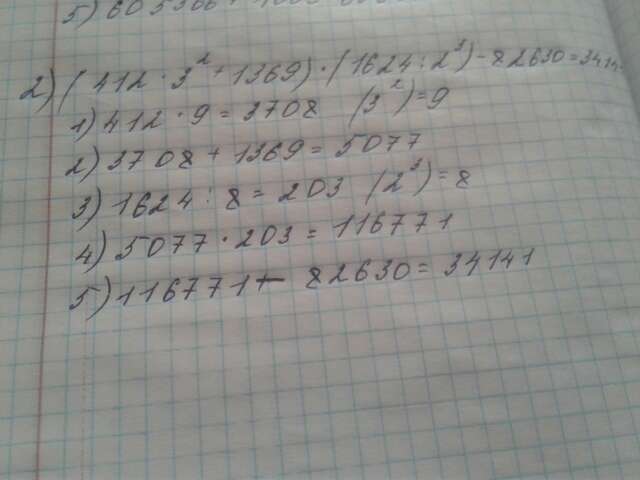 2) (412 · 3² + 1369) · (1624 : 2³) - 82630 = 3414
1) 412 · 9 = 3708 (3²) = 9
2) 3708 + 1369 = 5077
3) 1624 : 8 = 203 (2³) = 8
4) 5077 · 203 = 116771
5) 116771 - 82630 = 34141